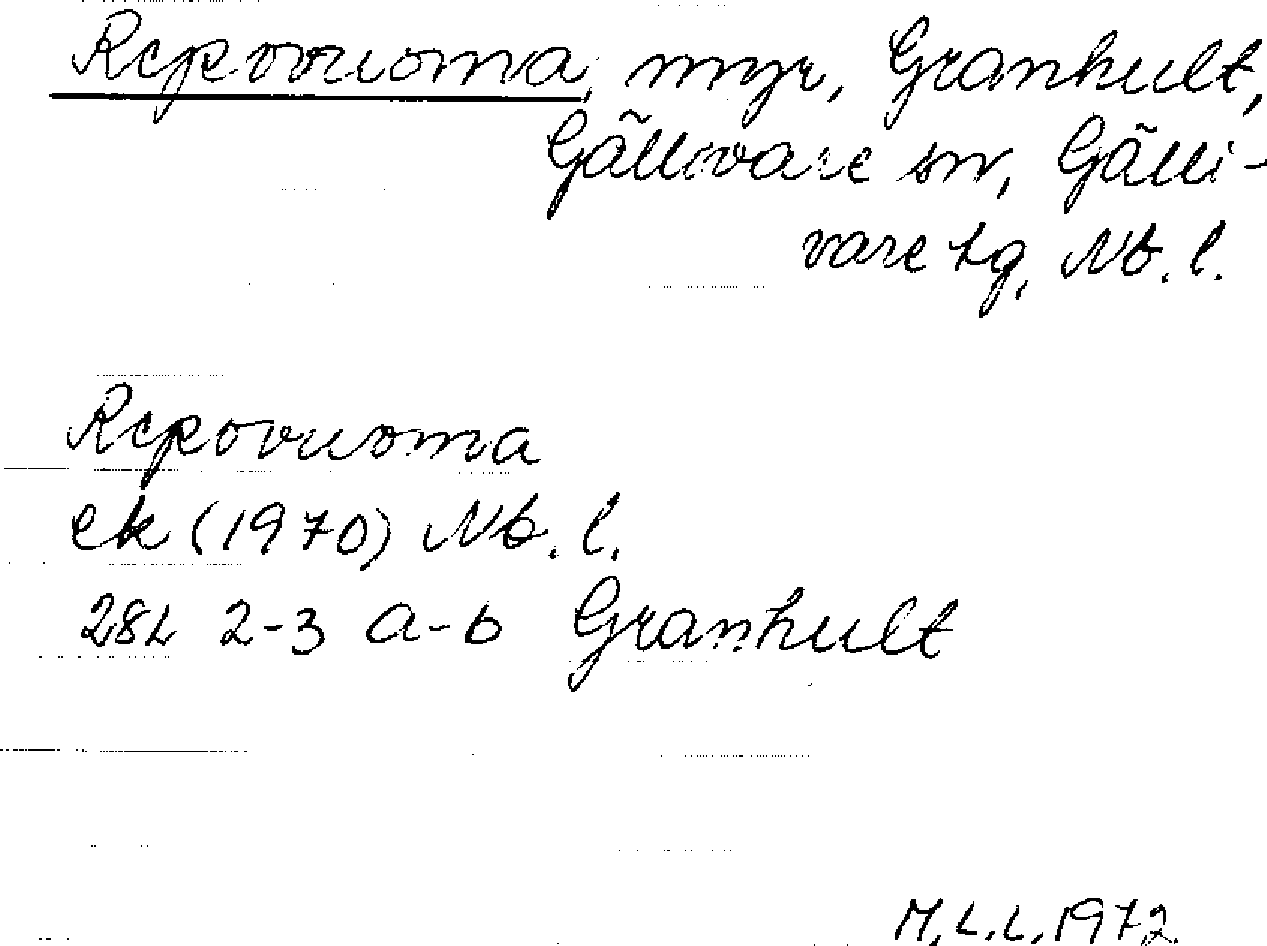 Repovuoma, myr, Granhult,
Gällivare sn, Gälli-
vare tg, Nb. l.
Repovuoma
ek (1970) Nb. l.
28L 2-3 a-b Granhult
M.L.L. 1972